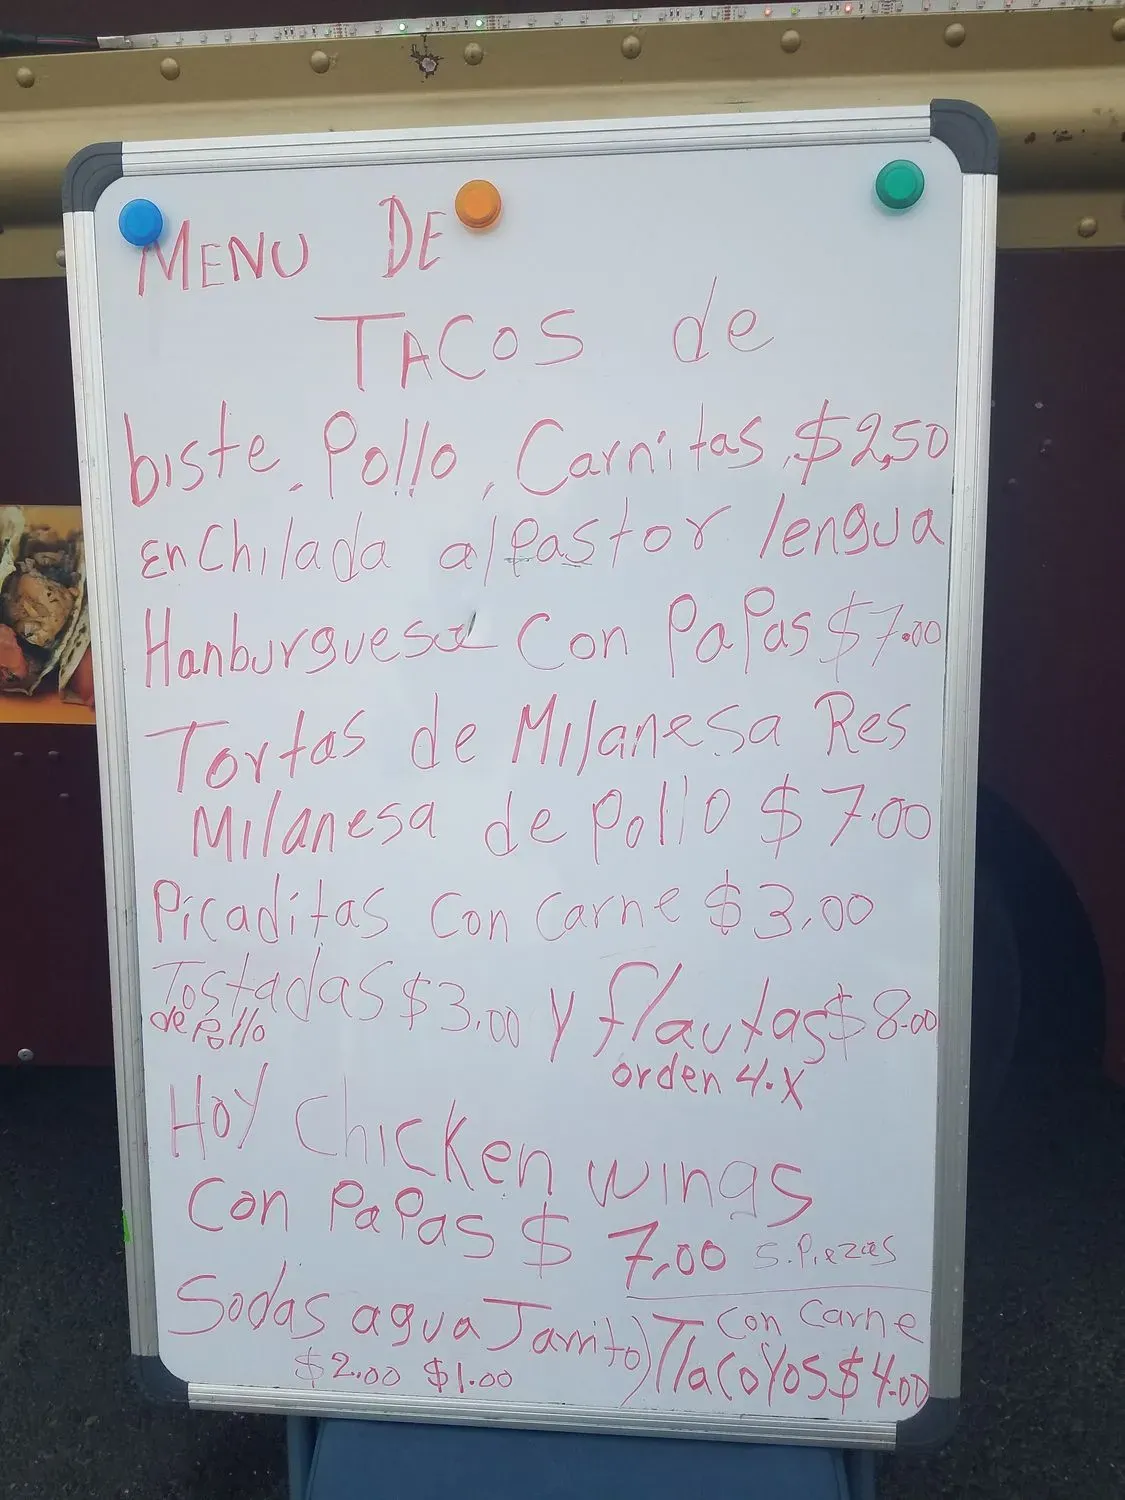 MENU DE
TACOS de
biste, Pollo, Carnitas, $2,50
Enchilada al Pastor lengua
Hanburguesa Con PaPas $7.00
Tortas de Milanesa Res
Milanesa de Pollo $7.00
Picaditas Con Carne $3.00
Tostadas $3.00 y flautas $8.00
de Pollo
orden 4.X
HOY Chicken wings
Con PaPas $7,00 5.Piezas
Sodas agua Jarrito
$2.00 $1.00
Con Carne
TlacoYos $4.00